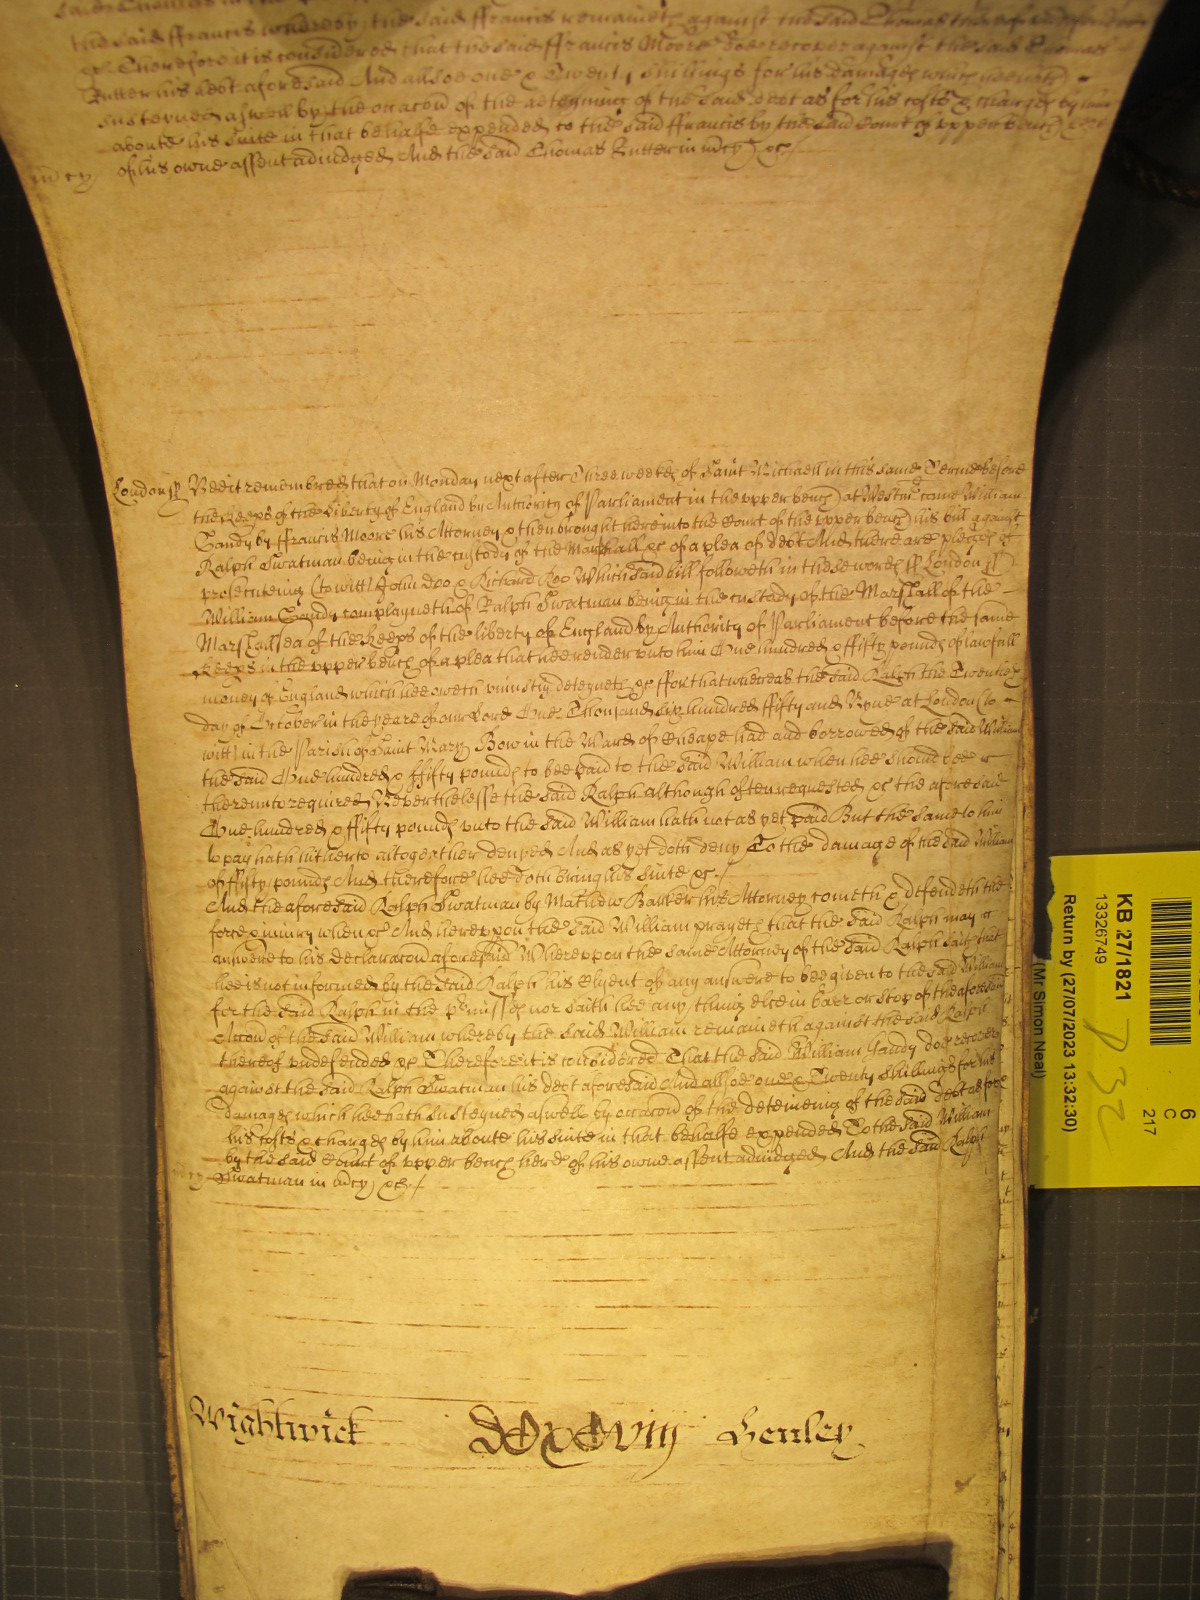 the said ffrancis whereby the said ffrancis remaineth against the said Thomas thereof undefended
&c Therefore it is considered that the said ffrancis Moore doe recover against the said Thomas
Rutter his debt aforesaid And allsoe one & Twenty shillings for his damages which hee hath
susteyned aswell by the occacon of the deteyning of the said debt as for his costs & charges by him
aboute his suite in that behalfe expended to the said ffrancis by the said Court of upper bench
of his owne assent adiudged And the said Thomas Rutter in mcy &c
in mcy
London ss Bee it remembred that on Monday next after Three weekes of Saint Michaell in this same Terme before
the Keeps of the Liberty of England by Authority of Parliament in the upper bench at Westmr came William
Gandy by ffrancis Moore his Attorney & then brought here into the Court of the upper bench his bill against
Ralph Swatman being in the custody of the Marshall &c of a plea of debt And there are pledges of
prosecuteing (to witt) John Doo & Richard Roo Which said bill followeth in these wordes ss London ss
William Gandy complayneth of Ralph Swatman being in the custody of the Marshall of the
Marshallsea of the Keeps of the liberty of England by Authority of Parliament before the same
Keeps in the upper bench of a plea that hee render unto him One hundred & ffifty pounds of lawfull
money of England which hee oweth uniustly deteyneth &c ffor that whereas the said Ralph the Twentieth
day of October in the yeare of our Lord One Thousand six hundred ffifty and Nyne at London (to
witt) in the Parish of Saint Mary Bow in the Ward of Cheape had and borrowed of the said William
the said One hundred & ffifty pounds to bee paid to the said William when hee should bee
thereunto required Neverthelesse the said Ralph although often requested &c the aforesaid
One hundred & ffifty pounds unto the said William hath not as yet paid But the same to him
to pay hath hitherto altogeather denyed And as yet doth deny To the damage of the said William
of ffifty pounds And therefore hee doth bring his suite &c
And the aforesaid Ralph Swatman by Mathew Barker his Attorney cometh & defendeth the
force & iniury when &c And hereupon the said William prayeth that the said Ralph may
answere to his declaracon aforesaid Whereupon the same Attorney of the said Ralph saith that
hee is not informed by the said Ralph his Clyent of any answere to bee given to the said William
for the said Ralph in the premisses nor saith hee any thing else in barr or stop of the aforesaid
Accon of the said William whereby the said William remaineth against the said Ralph
thereof undefended &c Therefore it is considered That the said William Gandy doe recover
against the said Ralph Swatman his debt aforesaid And allsoe one & Twenty shillings for his
damages which hee hath susteyned aswell by occacon of the deteineing of the said debt as for
his costs & charges by him aboute his suite in that behalfe expended To the said William
by the said Court of upper bench here of his owne assent adiudged And the said Ralph
Swatman in mcy &c
Wightwick DCxCviij Henley
KB 27/1821
13326749
Return by (27/07/2023 13:32:30)
(Mr Simon Neal)
6
C
217